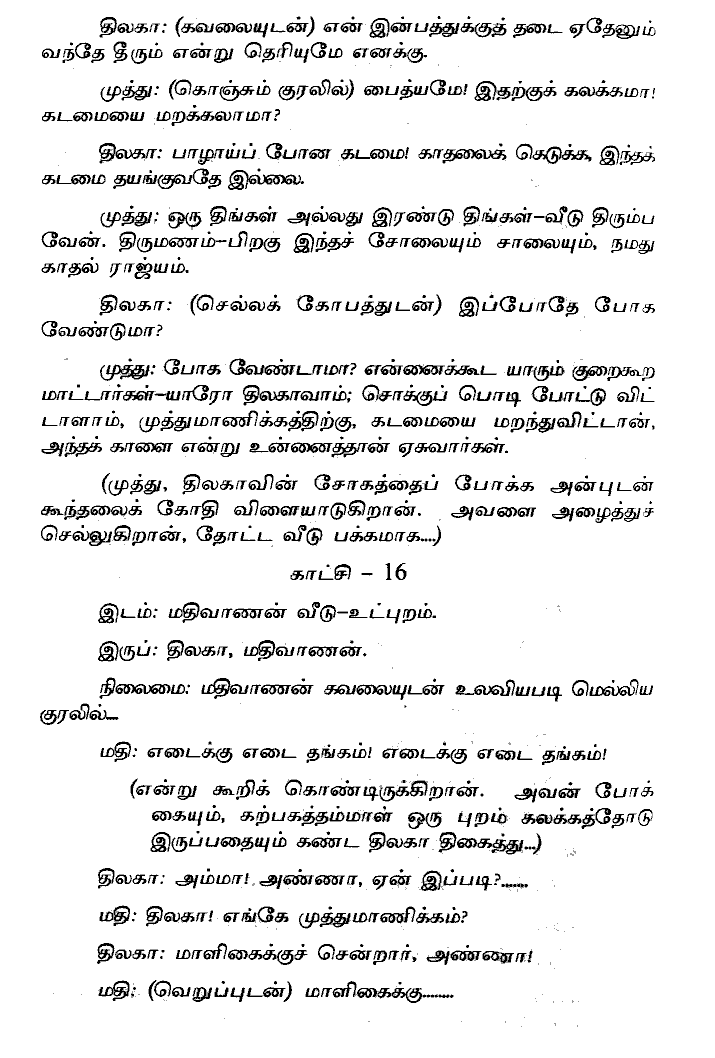 திலகா: (கவலையுடன்) என் இன்பத்துக்குத் தடை ஏதேனும்
வந்தே தீரும் என்று தெரியுமே எனக்கு.
முத்து: (கொஞ்சும் குரலில்) பைத்யமே! இதற்குக் கலக்கமா!
கடமையை மறக்கலாமா?
திலகா: பாழாய்ப் போன கடமை! காதலைக் கெடுக்க, இந்தக்
கடமை தயங்குவதே இல்லை.
முத்து: ஒரு திங்கள் அல்லது இரண்டு திங்கள்–வீடு திரும்ப
வேன். திருமணம்–பிறகு இந்தச் சோலையும் சாலையும், நமது
காதல் ராஜ்யம்.
திலகா: (செல்லக் கோபத்துடன்) இப்போதே போக
வேண்டுமா?
முத்து: போக வேண்டாமா? என்னைக்கூட யாரும் குறைகூற
மாட்டார்கள்–யாரோ திலகாவாம்; சொக்குப் பொடி போட்டு விட்
டாளாம், முத்துமாணிக்கத்திற்கு, கடமையை மறந்துவிட்டான்,
அந்தக் காளை என்று உன்னைத்தான் ஏசுவார்கள்.
(முத்து, திலகாவின் சோகத்தைப் போக்க அன்புடன்
கூந்தலைக் கோதி விளையாடுகிறான். அவளை அழைத்துச்
செல்லுகிறான், தோட்ட வீடு பக்கமாக....)
காட்சி – 16
இடம்: மதிவாணன் வீடு–உட்புறம்.
இருப்: திலகா, மதிவாணன்.
நிலைமை: மதிவாணன் கவலையுடன் உலவியபடி மெல்லிய
குரலில்...
மதி: எடைக்கு எடை தங்கம்! எடைக்கு எடை தங்கம்!
(என்று கூறிக் கொண்டிருக்கிறான். அவன் போக்
கையும், கற்பகத்தம்மாள் ஒரு புறம் கலக்கத்தோடு
இருப்பதையும் கண்ட திலகா திகைத்து...)
திலகா: அம்மா! அண்ணா, ஏன் இப்படி?.......
மதி: திலகா! எங்கே முத்துமாணிக்கம்?
திலகா: மாளிகைக்குச் சென்றார், அண்ணா!
மதி: (வெறுப்புடன்) மாளிகைக்கு........